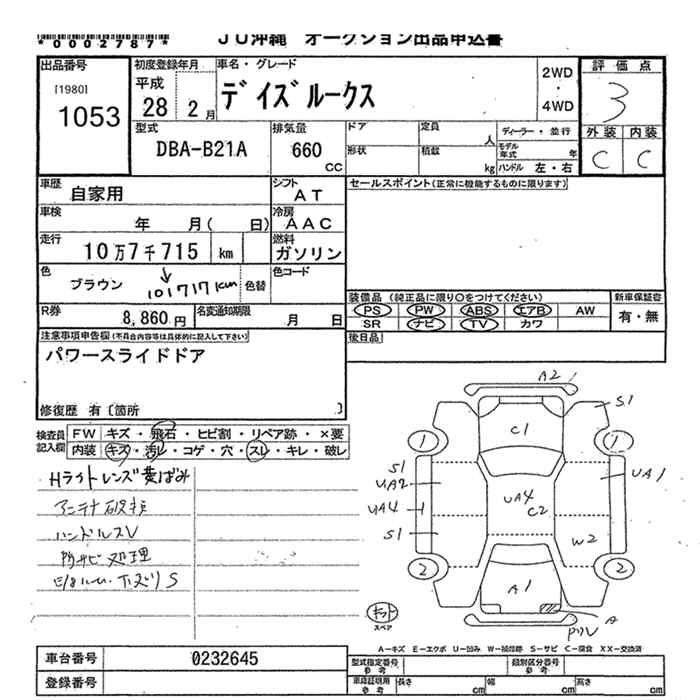 *0002787*
JU沖縄 オークション出品申込書
出品番号 初度登録年月 車名・グレード 評価点
[1980] 平成 2WD
1053 28 2月 デイズルークス ・ 3
4WD
型式 排気量 ドア 定員 人 ディーラー・並行 外装 内装
DBA-B21A 660 CC 形状 積載 kg モデル年式 年 C C
ハンドル 左・右
車歴 自家用 シフト AT セールスポイント(正常に機能するものに限ります)
車検 年 月( 日) 冷房 AAC
走行 10万7千715 km 燃料 ガソリン
色 ブラウン 101717km 色替 色コード
装備品 (純正品に限り○をつけてください) 新車保証書
R券 8,860円 名変通知期限 月 日
PS PW ABS エアB AW 有・無
SR ナビ TV カワ
注意事項申告欄(不具合内容等は具体的に記入して下さい) 後日品
パワースライドドア
修復歴 有 [箇所 ]
検査員記入欄 FW キズ・飛石・ヒビ割・リペア跡・×要
内装 キズ・汚レ・コゲ・穴・スレ・キレ・破レ
Hライトレンズ黄ばみ
アンテナ破損
ハンドルスレ
内サビ処理
A2
S1
C1
1 1
S1
UA2 UA1
UA4 1 UA4
C2
S1 W2
2 2
A1
A
キット
スペア
A-キズ E-エクボ U-凹み W-補修跡 S-サビ C-腐食 XX-交換済
車台番号 0232645
登録番号
型式指定番号 参考 類別区分番号 参考
車庫証明用 参考 長さ cm 幅 cm 高さ cm